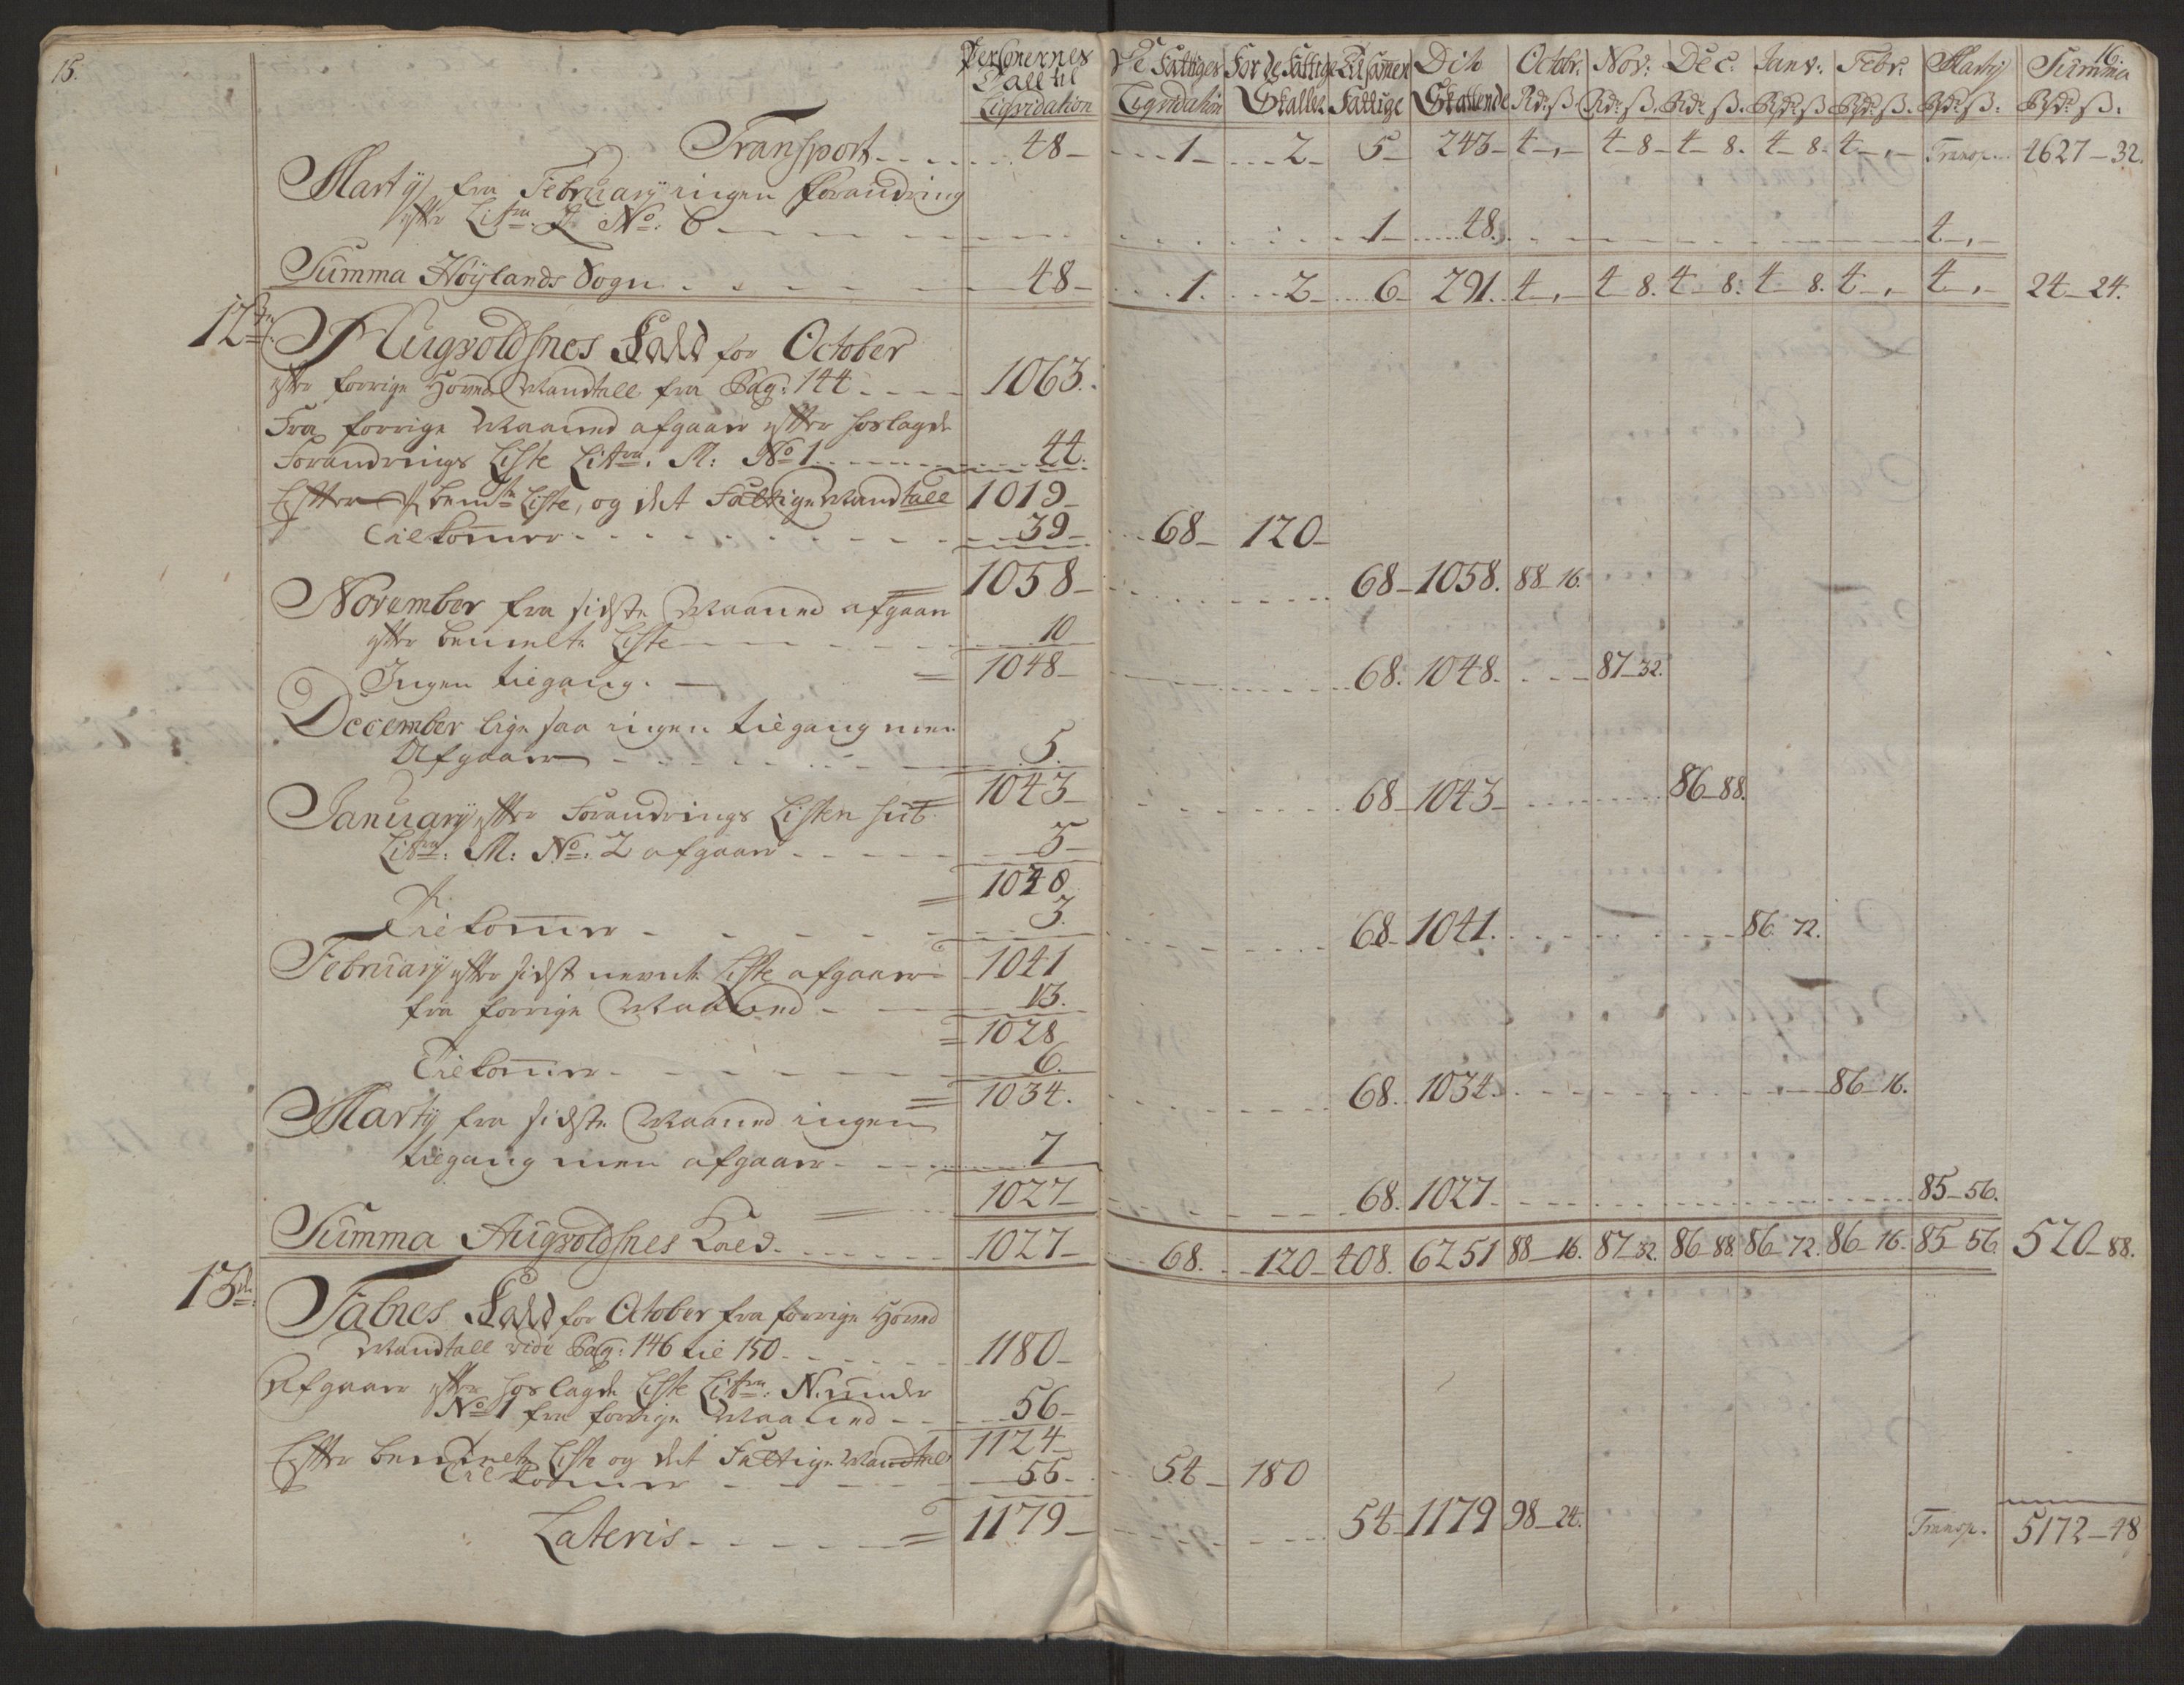 15.
16.
Personernes Tall til Liqvidation | De Fattiges Liqvidation | For de Fattige Skatter | Tilsamen Fattige | Dito Skattende | Octobr: Rdr ß | Nov: Rdr ß. | Dec. Rdr ß. | Janv: Rdr ß | Febr: Rdr ß. | Martij Rdr ß: | Summa Rdr ß.
Transport - - - 48 - - - 1 - - - 2 - 5 - 243 - 4 - , - 4 - 8 - 4 - 8. 4 - 8. 4 - , - Transp... 4627 - 32.
Martij fra Februarij ingen forandring
efter Litra L No: 6 - - - 1 - 48. - - - 4 - , -
Summa Höylands Sogn - - - 48 - - - 1. - - 2 - - 6 - 291. 4 - , - 4 - 8. 4 - 8. 4 - 8. 4 - , - 4 - , - 24 - 24.
12te
Augvoldsnes Sk for October
efter forrige Hoved Mandtall fra Pag: 144 - - - 1063.
Fra forrige Maaned afgaar efter hoslagde
Forandrings Liste Litra. M: No 1 - - - 44.
Efter bemte Liste, og det Fattige Mandtall 1019 -
Tilkomer - - - 39 - - - 68 - 120 -
= 1058 - - - 68 - 1058. 88 - 16.
November fra sidste Maaned afgaar
efter bemelte Liste - - - 10
Ingen tilgang. - = 1048 - - - 68. 1048. - - - 87 - 32.
December lige saa ingen tilgang men
Afgaar - - - 5.
= 1043 - - - 68 - 1043 - - - 86 - 88.
Januarij efter Forandrings Listen sub
Litra: M: No: 2 afgaar - - - 5 -
= 1038
Tilkomer - - - 3. - - - 68 - 1041. - - - 86 72.
Februarij efter sidst nevnte Liste afgaar = 1041
fra forrige Maaned - - - 13.
= 1028
Tilkomer - - - 6.
= 1034. - - - 68. 1034. - - - 86 - 16.
Martij fra sidste Maaned ingen
tilgang men afgaar - - - 7
= 1027 - - - 68. 1027 - - - 85 - 56.
Summa Augvoldsnes - - - 1027 - - 68. - - 120 - 408. 6251 88 - 16. 87 - 32. 86 - 88. 86 - 72. 86 - 16. 85 - 56. 520 - 88.
13de
Falnes for October fra forrige Hoved
Mandtall vide Pag: 146 til 150 - - - 1180 -
Afgaar efter hoslagde Liste Litra: N. under
No 1 fra forrige Maaned - - - 56 -
Efter bemelte Liste og det Fattige Mandtall 1124
Tilkomer - - - 55 - - - 54 - 180
Lateris - - - = 1179 - - - 54 - 1179 98 - 24. Transp. 5172 - 48